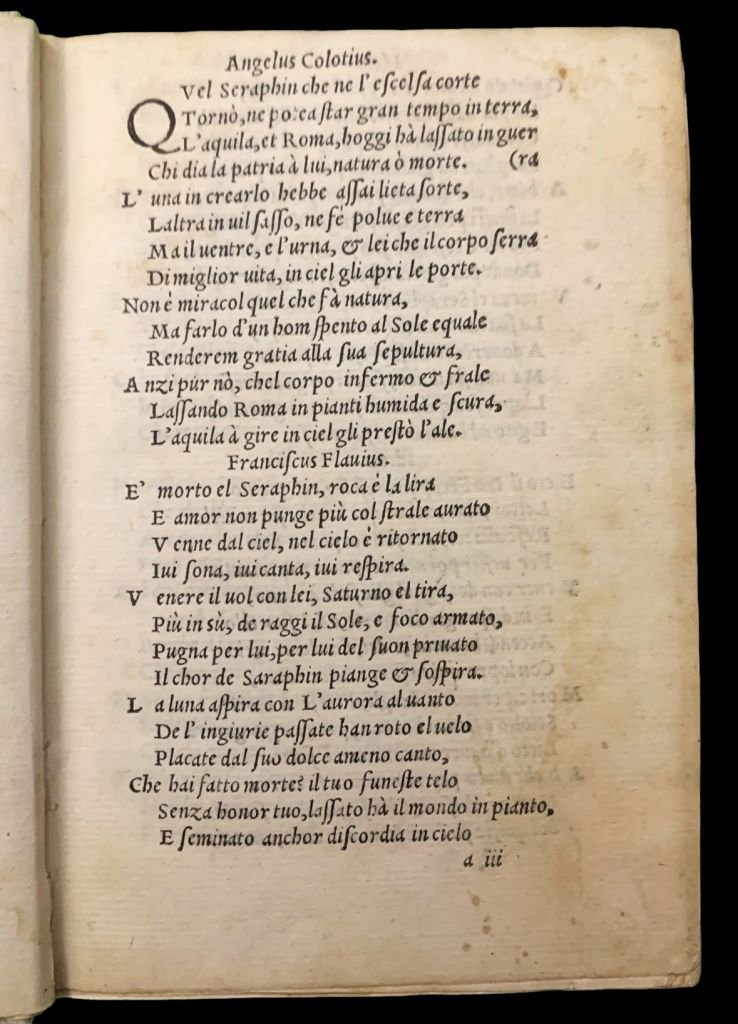 Angelus Colotius.
QVel Seraphin che ne l' eſcelſa corte
Tornò, ne potea ſtar gran tempo in terra,
L'aquila, et Roma, hoggi hà laſſato in guer
Chi dia la patria à lui, natura ò morte. (ra
L' una in crearlo hebbe aſſai lieta ſorte,
Laltra in uil ſaſſo, ne fè polue e terra
Ma il uentre, e l'urna, & lei che il corpo ſerra
Di miglior uita, in ciel gli aprì le porte.
Non è miracol quel che fà natura,
Ma farlo d'un hom ſpento al Sole equale
Renderem gratia alla ſua ſepultura,
A nzi pur nò, chel corpo infermo & frale
Laſſando Roma in pianti humida e ſcura,
L'aquila à gire in ciel gli preſtò l'ale.
Franciſcus Flauius.
E' morto el Seraphin, roca è la lira
E amor non punge più col ſtrale aurato
V enne dal ciel, nel cielo è ritornato
Iui ſona, iui canta, iui reſpira.
V enere il uol con lei, Saturno el tira,
Più in sù, de raggi il Sole, e foco armato,
Pugna per lui, per lui del ſuon priuato
Il chor de Saraphin piange & ſoſpira.
L a luna aſpira con L'aurora al uanto
De l' ingiurie paſſate han roto el uelo
Placate dal ſuo dolce ameno canto,
Che hai fatto morte? il tuo funeſte telo
Senza honor tuo, laſſato hà il mondo in pianto,
E ſeminato anchor diſcordia in cielo
a iii